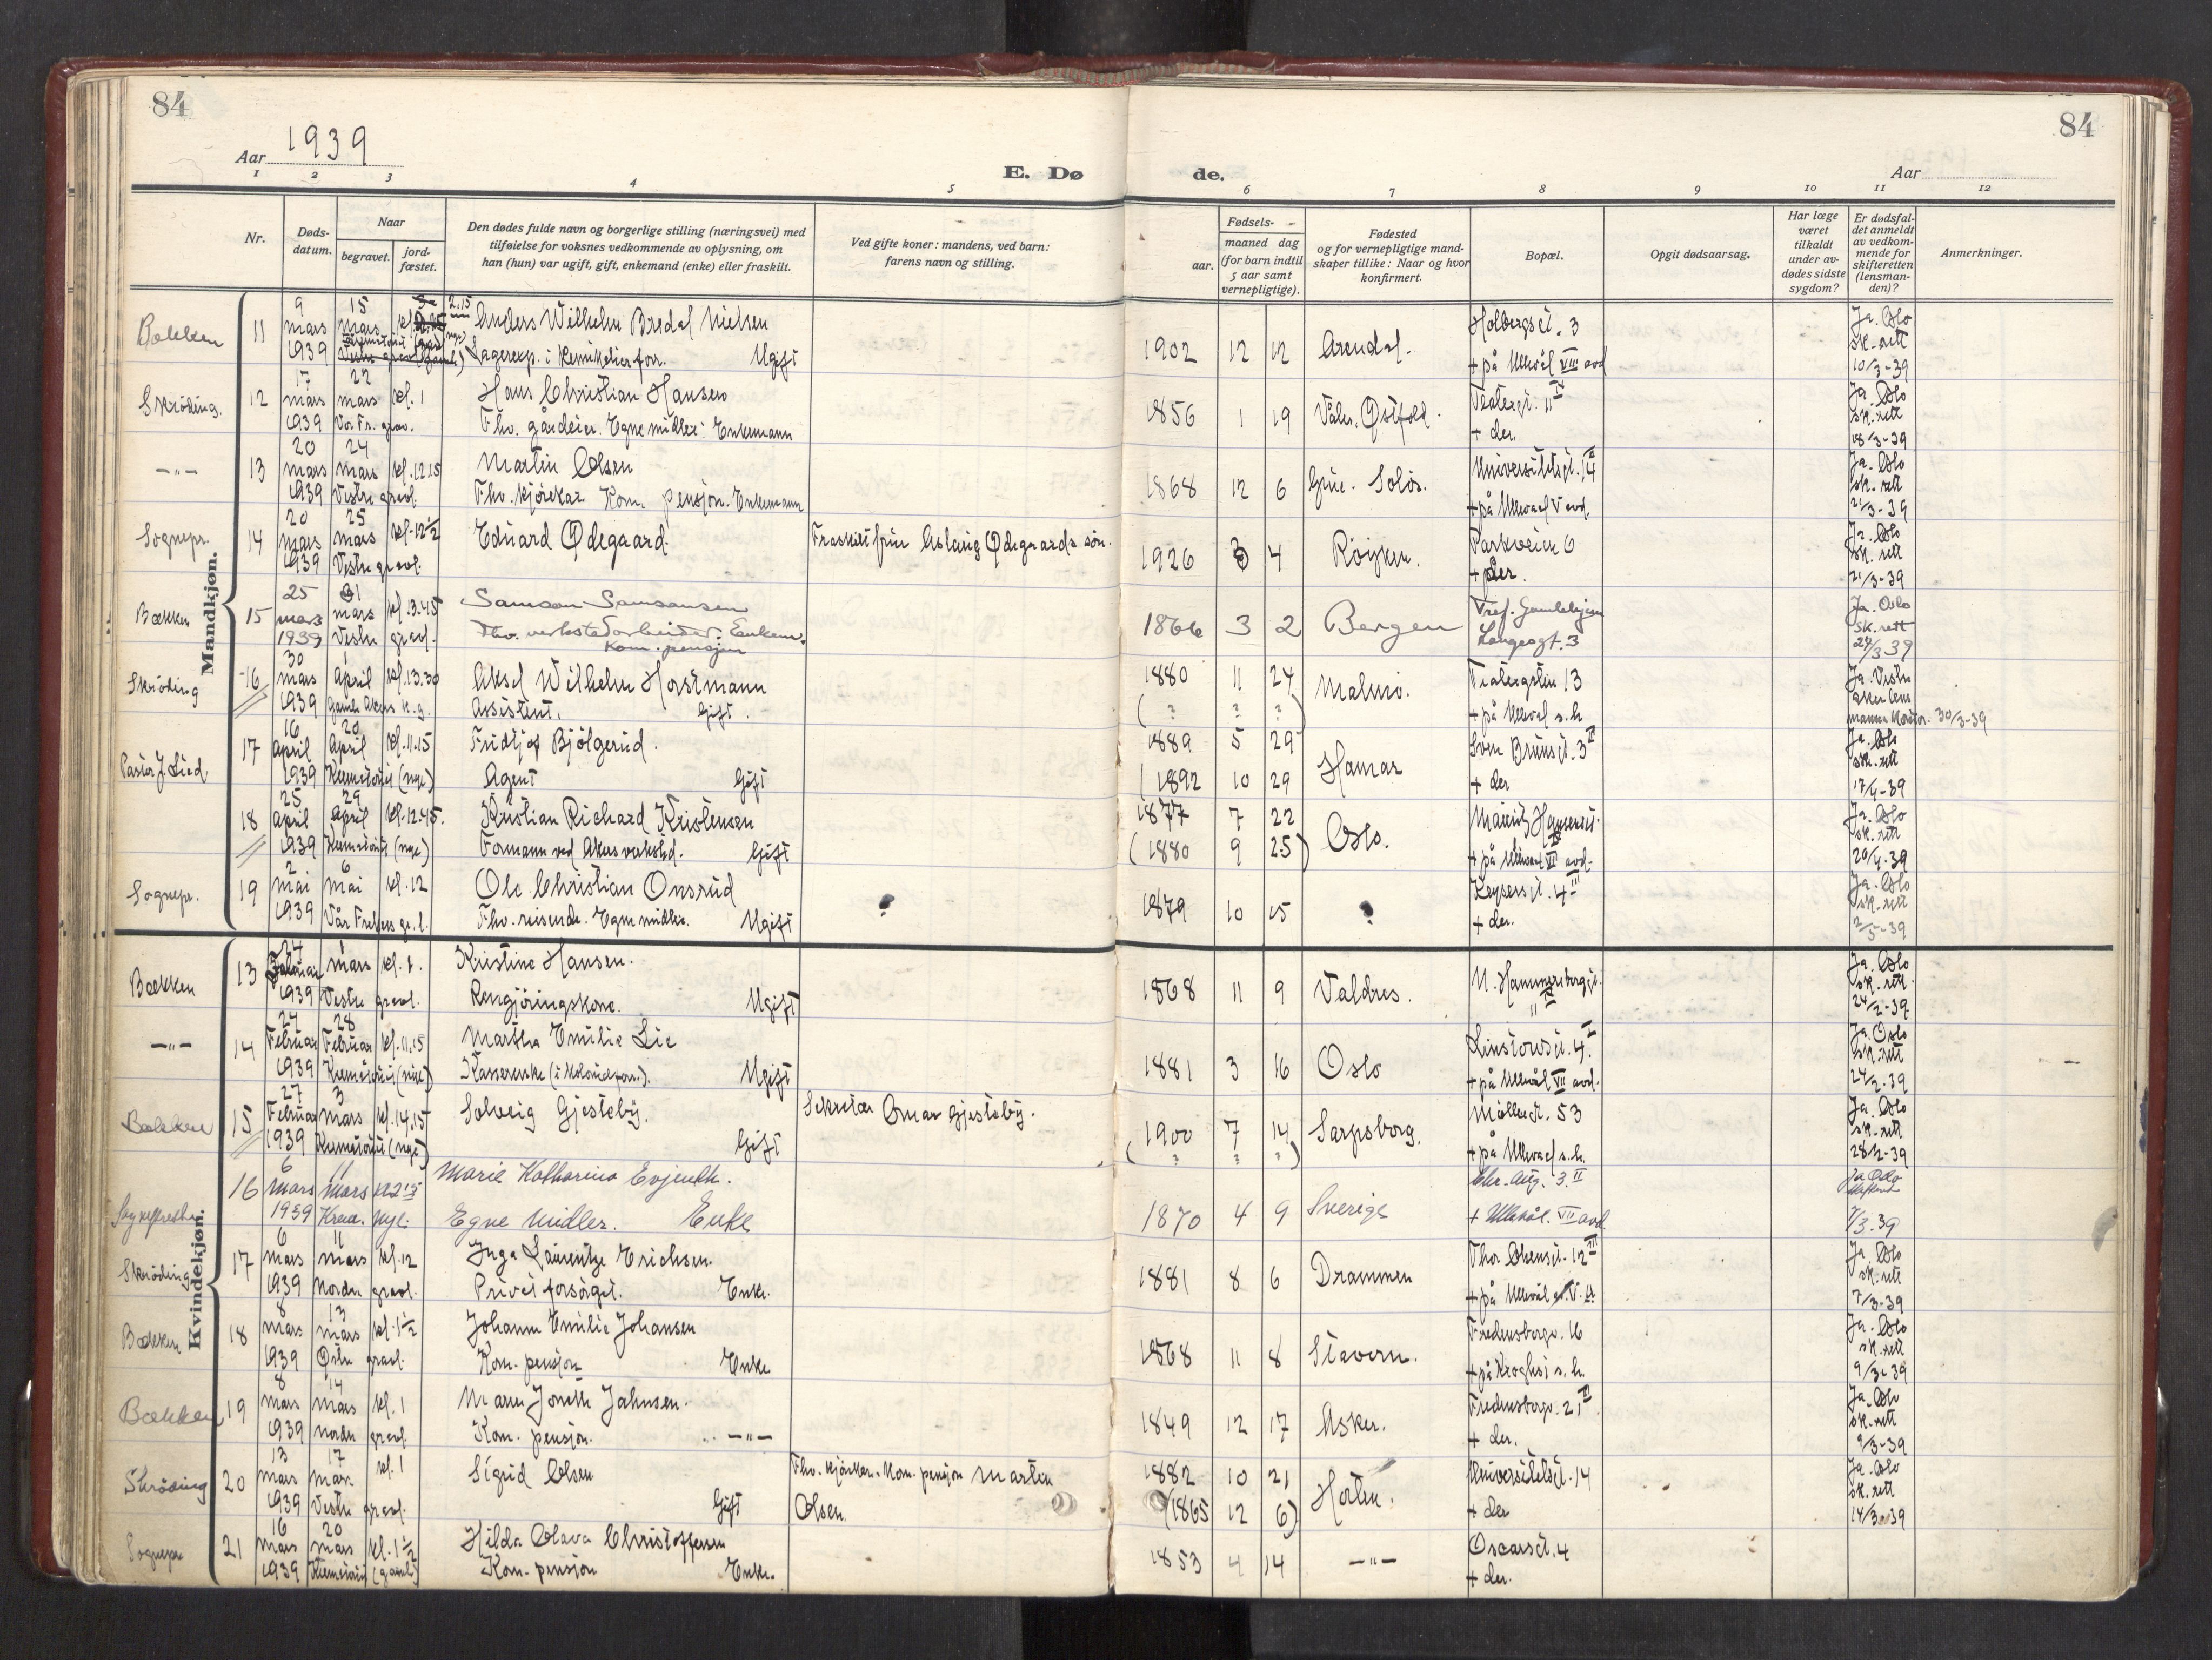 84
84
Aar 1939
E. Dø
de.
Aar
1 2 3 4 5 6 7 8 9 10 11 12
Nr.
Døds-
datum.
Naar
begravet.
jord-
fæstet.
Den dødes fulde navn og borgerlige stilling (næringsvei) med
tilføielse for voksnes vedkommende av oplysning, om
han (hun) var ugift, gift, enkemand (enke) eller fraskilt.
Ved gifte koner: mandens, ved barn:
farens navn og stilling.
aar.
Fødsels-
maaned dag
(for barn indtil
5 aar samt
vernepligtige).
Fødested
og for vernepligtige mand-
skaper tillike: Naar og hvor
konfirmert.
Bopæl.
Opgit dødsaarsag.
Har læge
været
tilkaldt
under av-
dødes sidste
sygdom?
Er dødsfal-
det anmeldt
av vedkom-
mende for
skifteretten
(lensman-
den)?
Anmerkninger.
Mandkjøn.
Bækken 11 9 mars 1939 15 mars kl. 2.15
Anders Wilhelm Bredal Nielsen
Lagerexp. i kemikalieforr. Ugift
1902 12 12 Arendal. Holbergsgt. 3
+ på Ullevål VIII avd
Ja. Oslo
sk. rett
10/3-39
Skröding. 12 17 mars 1939 22 mars kl. 1
Vor Fr. grav.
Hans Christian Hansen
Fhv. gårdeier. Egne midler. Enkemann
1856 1 19 Våler, Østfold. Teatergt. 11
+ der.
Ja. Oslo
sk. rett
18/3-39
-"- 13 20 mars 1939 24 mars kl. 12.15
Vestre gravl.
Martin Olsen
Fhv. kjørekar. Kom. pensjon. Enkemann
1868 12 6 Grue. Solør. Universitetsgt. 14
+ på Ullevål V avd.
Ja. Oslo
sk. rett
21/3-39
Sognepr. 14 20 mars 1939 25 mars kl. 12 1/2
Vestre gravl.
Edvard Ødegaard.
Fraskilt frue Aslaug Ødegaards søn.
1926 3 4 Røyken. Parkveien 6
+ der.
Ja. Oslo
sk. rett
21/3-39
Bækken 15 25 mars 1939 31 mars kl. 13.45
Vestre gravl.
Samson Samsonsen
Fhv. verkstedarbeider. Enkem.
Kom. pensjon
1866 3 2 Bergen Pref. Gamlehjem
Langesgt. 3
Ja. Oslo
sk. rett
27/3 39
Skröding 16 30 mars 1939 1 april kl. 13.30
Gamle Akers k.g.
Aksel Wilhelm Horstmann
Assistent. Gift.
1880 11 24
( ? ? ? )
Malmø. Teatergaten 13
+ på Ullevål s.h.
Ja. Vestre
Aker lens
mannskontor. 30/3-39
Pastor J. Lied 17 16 april 1939 20 april kl. 11.15
Krematoriet (nye)
Fridtjof Bjølgerud.
Agent Gift
1889 5 29
(1892 10 29
Hamar Sven Brunsgt. 3 II
+ der
Ja. Oslo
sk. rett
17/4-39
18 25 april 1939 29 april kl. 12.45.
Krematoriet (nye)
Kristian Richard Kristensen
Formann ved Akers verksted. Gift
1877 7 22
(1880 9 25)
Oslo. Mauritz Hansensgt.
+ på Ullevål VI avd.
Ja. Oslo
sk. rett
Sognepr. 19 2 mai 1939 6 mai kl. 12
Vår Frelsers gr. l.
Ole Christian Onsrud
Fhv. reisende. Egne midler. Ugift
?
1879 10 15 ? Keysersgt. 4 III
+ der.
Ja. Oslo
sk. rett
2/5-39
Kvindekjøn.
Bækken 13 24 Februar 1939 1 mars kl. 1.
Vestre gravl.
Kristine Hansen.
Rengjøringskone. Ugift
1868 11 9 Valdres. N. Hammersborggt.
11
Ja. Oslo
sk. rett.
24/2-39
-"- 14 24 Februar 1939 28 Februar kl. 11.15
Krematoriet (nye)
Martha Emilie Lie
Kassererske (i kolonialforr.). Ugift
1881 3 16 Oslo Linstowsgt. 4. I
+ på Ullevål VII avd.
Ja. Oslo
sk. rett
24/2-39
Bækken 15 27 Februar 1939 3 mars kl. 14.15
Krematoriet (nye)
Solveig Gjesteby.
Gift
Sekretær Omar Gjesteby.
1900 7 14
( ? ? ? )
Sarpsborg. Møllergt. 53
+ på Ullevål s.h.
Ja. Oslo
sk. rett
28/2-39
Sykepresten 16 6 mars 1939 11 mars kl 2 15
Krem. nye.
Marie Katharina Evjenth.
Egne midler. Enke
1870 4 9 Sverige Chr. Aug. 3. II
+ Ullevål. VII avd
Ja Oslo
7/3-39
Skröding 17 6 mars 1939 11 mars kl. 12
Nordre gravl.
Inga Laurentze Erichsen.
Privat forsørget. Enke.
1881 8 6 Drammen Thor Olsensgt. 12 III
+ på Ullevål
Ja. Oslo
sk. rett
7/3-39
Bækken 18 8 mars 1939 13 mars kl. 1 1/2
Østre gravl.
Johanne Emilie Johansen
Kom. pensjon Enke
1868 11 8 Stavern. Fredensborgv. 16
+ på Kroghs s.h.
Ja. Oslo
sk. rett
9/3-39
Bækken 19 8 mars 1939 14 mars kl. 1
Nordre gravl.
Maren Jonette Jahnsen.
Kom. pensjon. -"-
1849 12 17 Asker. Fredensborgv. 21 II
+ der.
Ja. Oslo
sk. rett
9/3-39
Skröding 20 13 mars 1939 17 mars kl. 1
Vestre gravl.
Sigrid Olsen
Gift
Fhv. kjørekar. Kom. pensjon Martin
Olsen
1882 10 21
(1865 12 6)
Horten. Universitetsgt. 14
+ der
Ja. Oslo
sk. rett
14/3-39
Sognepr 21 16 mars 1939 20 mars kl. 1 1/2
Krematoriet (gaml.)
Hilda Olava Christoffersen
Kom. pensjon Enke.
1853 4 14 -"- Oscarsgt. 4
+ der.